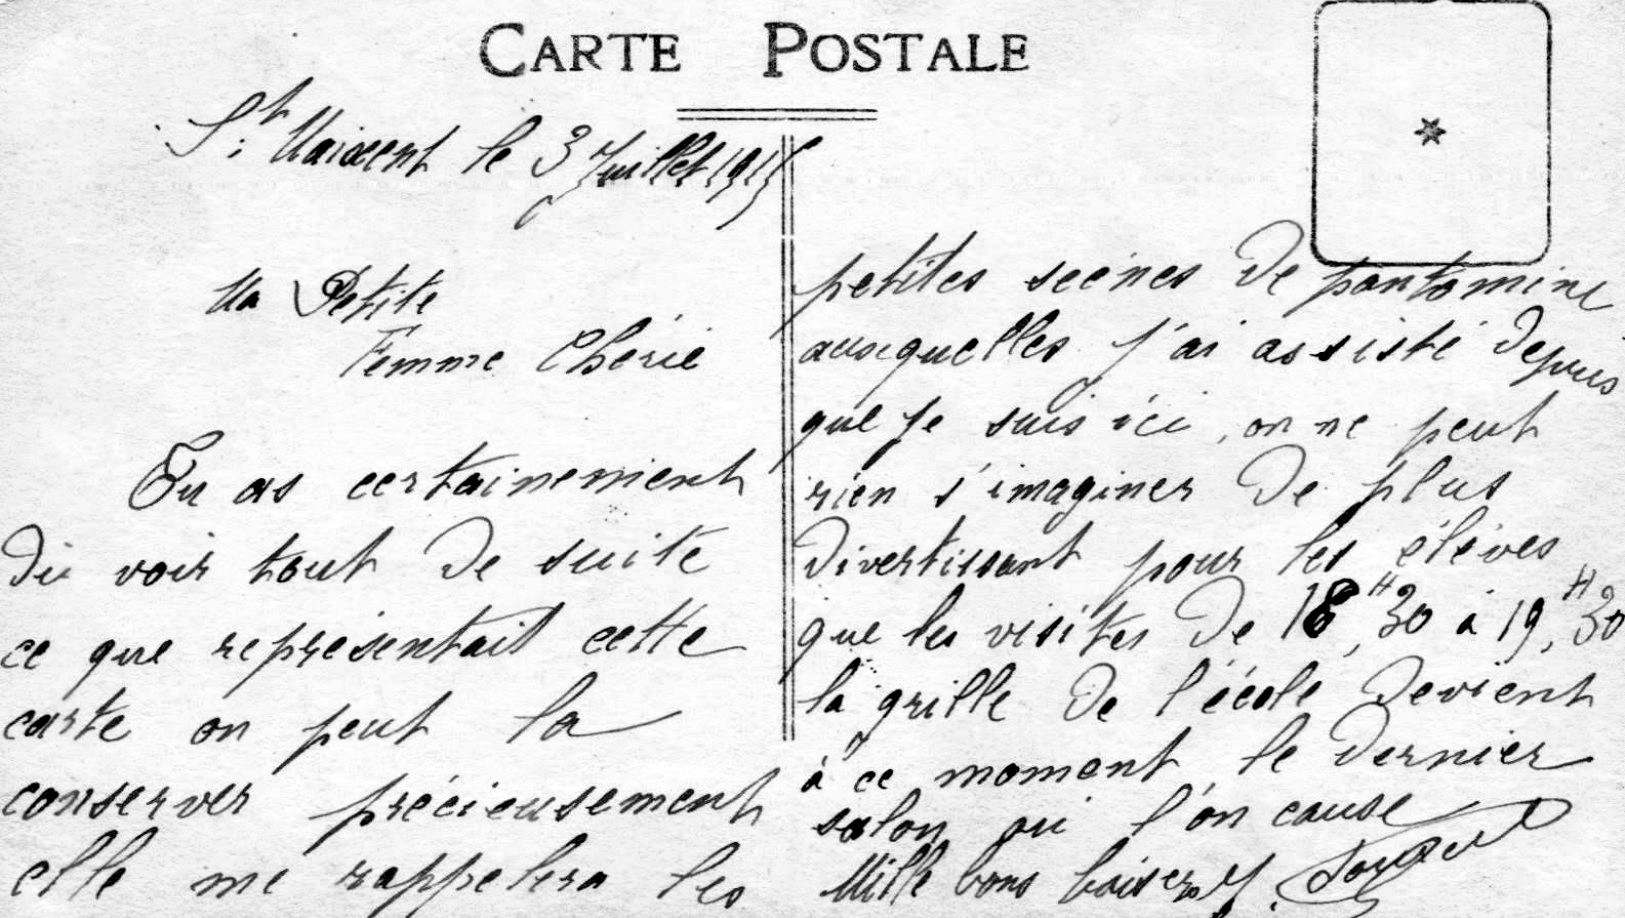 CARTE POSTALE
St Maixent le 3 Juillet 1915
Ma Petite
Femme Chérie
Tu as certainement
dû voir tout de suite
ce que représentait cette
carte on peut la
conserver précieusement
elle me rappelera les
petites scènes de pantomine
auxquelles j'ai assisté depuis
que je suis ici, on ne peut
rien s'imaginer de plus
divertissant pour les élèves
que les visites de 18,H30 à 19,H30
la grille de l'école devient
à ce moment le dernier
salon où l'on cause
Mille bons baisers